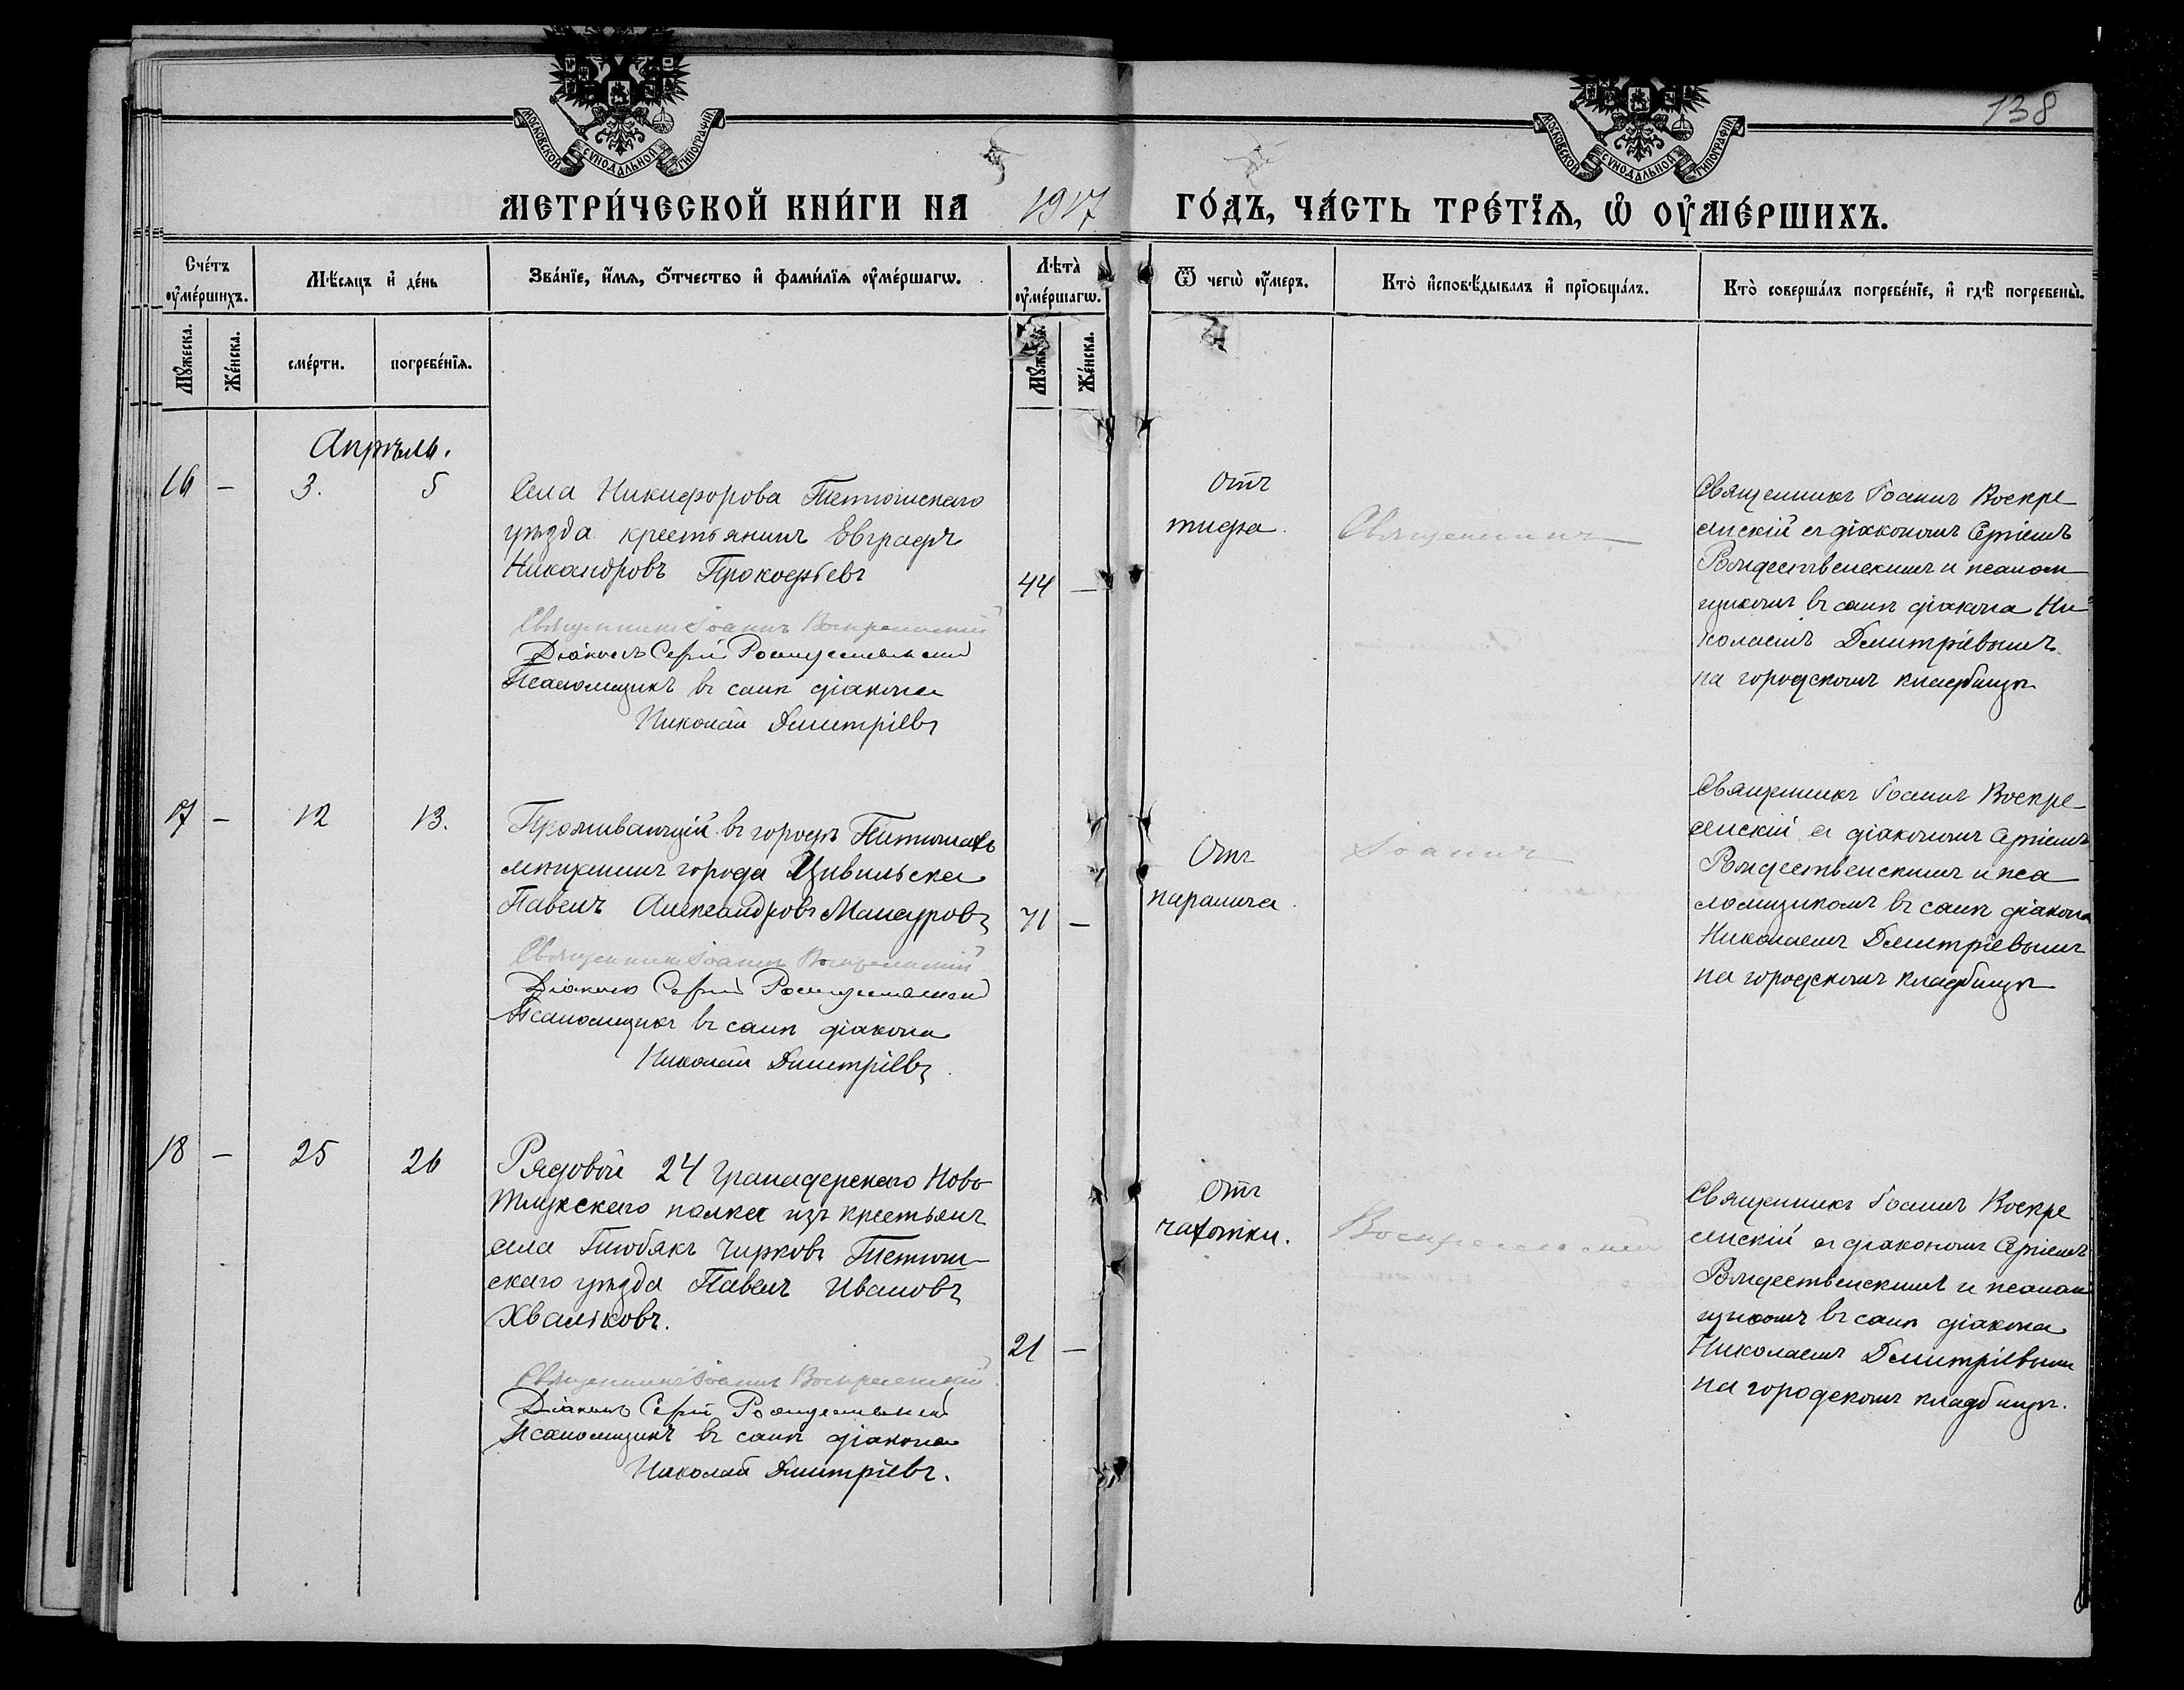 138
МОСКОВСКОЙ СѴНОДАЛЬНОЙ ТИПОГРАФІИ
МОСКОВСКОЙ СѴНОДАЛЬНОЙ ТИПОГРАФІИ
МЕТРИ́ЧЕСКОЙ КНИ́ГИ НА 1917 ГО́ДЪ, ЧА́СТЬ ТРЕ́ТЇѦ, Ѡ ОУ҆МЕ́РШИХЪ.
Сче́тъ оу҆ме́ршихъ.
Мѣ́сяцъ и҆ де́нь
Зва́нїе, и҆́мѧ, ѻ҆́тчество и҆ фами́лїѧ оу҆ме́ршагѡ.
Лѣта̀ оу҆ме́ршагѡ.
Ѿ чегѡ̀ оу҆́меръ.
Кто̀ и҆сповѣ́дывалъ и҆ прїѻбща́лъ.
Кто̀ соверша́лъ погребе́нїе, и҆ гдѣ̀ погребены̀.
Мꙋ́жеска.
Же́нска.
сме́рти.
погребе́нїѧ.
Мꙋ́жеска.
Же́нска.
Апрѣль.
16 – 3. 5
Села Никифорова Тетюшскаго
уѣзда крестьянинъ Евграфъ
Никандровъ Прокофьевъ
44 –
Священникъ Іоаннъ Воскресенскій
Діаконъ Сергій Рождественскій
Псаломщикъ въ санѣ діакона
Николай Димитріевъ
отъ
тифа.
Священникъ
Священникъ Іоаннъ Воскре
сенскій съ діакономъ Сергіемъ
Рождественскимъ и псалом
щикомъ въ санѣ діакона Ни
колаемъ Димитріевымъ
на городскомъ кладбищѣ
17 – 12 13.
Проживающій въ городѣ Тетюшахъ
мѣщанинъ города Цивильска
Павелъ Александровъ Мансуровъ
71 –
Священникъ Іоаннъ Воскресенскій
Діаконъ Сергій Рождественскій
Псаломщикъ въ санѣ діакона
Николай Димитріевъ
Отъ
паралича.
Іоаннъ
Священникъ Іоаннъ Воскре
сенскій съ діакономъ Сергіемъ
Рождественскимъ и пса
ломщикомъ въ санѣ діакона
Николаемъ Димитріевымъ
на городскомъ кладбищѣ
18 – 25 26
Рядовой 24 гранадерскаго Ново
скаго полка изъ крестьянъ
села Чирковъ Тетюш–
скаго уѣзда Павелъ Ивановъ
Хваликовъ.
21 –
Священникъ Іоаннъ Воскресенскій
Діаконъ Сергій Рождественскій
Псаломщикъ въ санѣ діакона
Николай Димитріевъ.
отъ
чахотки.
Воскресенскій
Священникъ Іоаннъ Воскре
сенскій съ діакономъ Сергіемъ
Рождественскимъ и псалом
щикомъ въ санѣ діакона
Николаемъ Димитріевымъ
на городскомъ кладбищѣ.